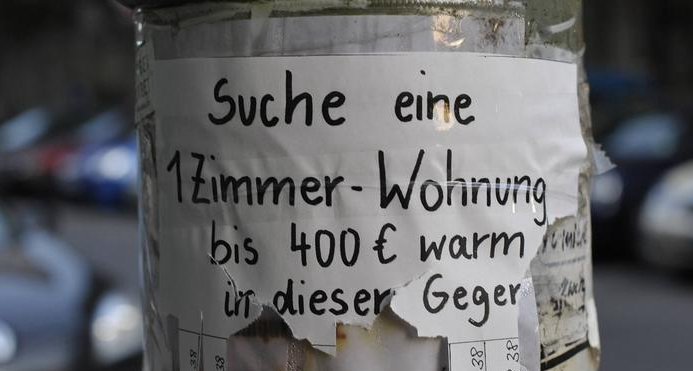 Suche eine
1 Zimmer-Wohnung
bis 400 € warm
in dieser Geger
38
38
38
38